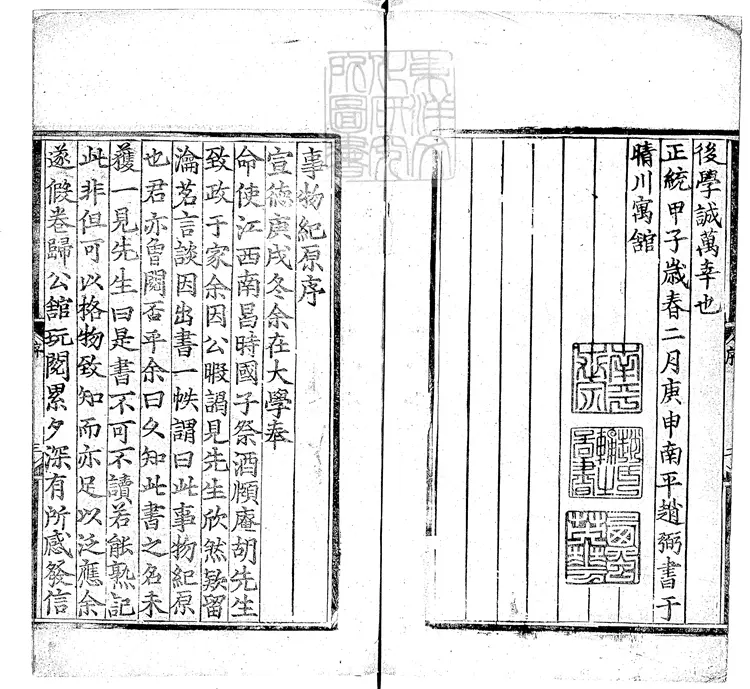 後學誠萬幸也
正統甲子歲春二月庚申南平趙弼書于
晴川寓舘
事物紀原序
宣德庚戌冬余在大學奉
命使江西南昌時國子祭酒頤庵胡先生
致政于家余因公暇謁見先生欣然欵留
瀹茗言談因出書一帙謂曰此事物紀原
也君亦曾閱否乎余曰久知此書之名未
獲一見先生曰是書不可不讀若能熟記
此非但可以格物致知而亦足以泛應余
遂假卷歸公舘玩閱累夕深有所感發信
東洋文化研究所圖書